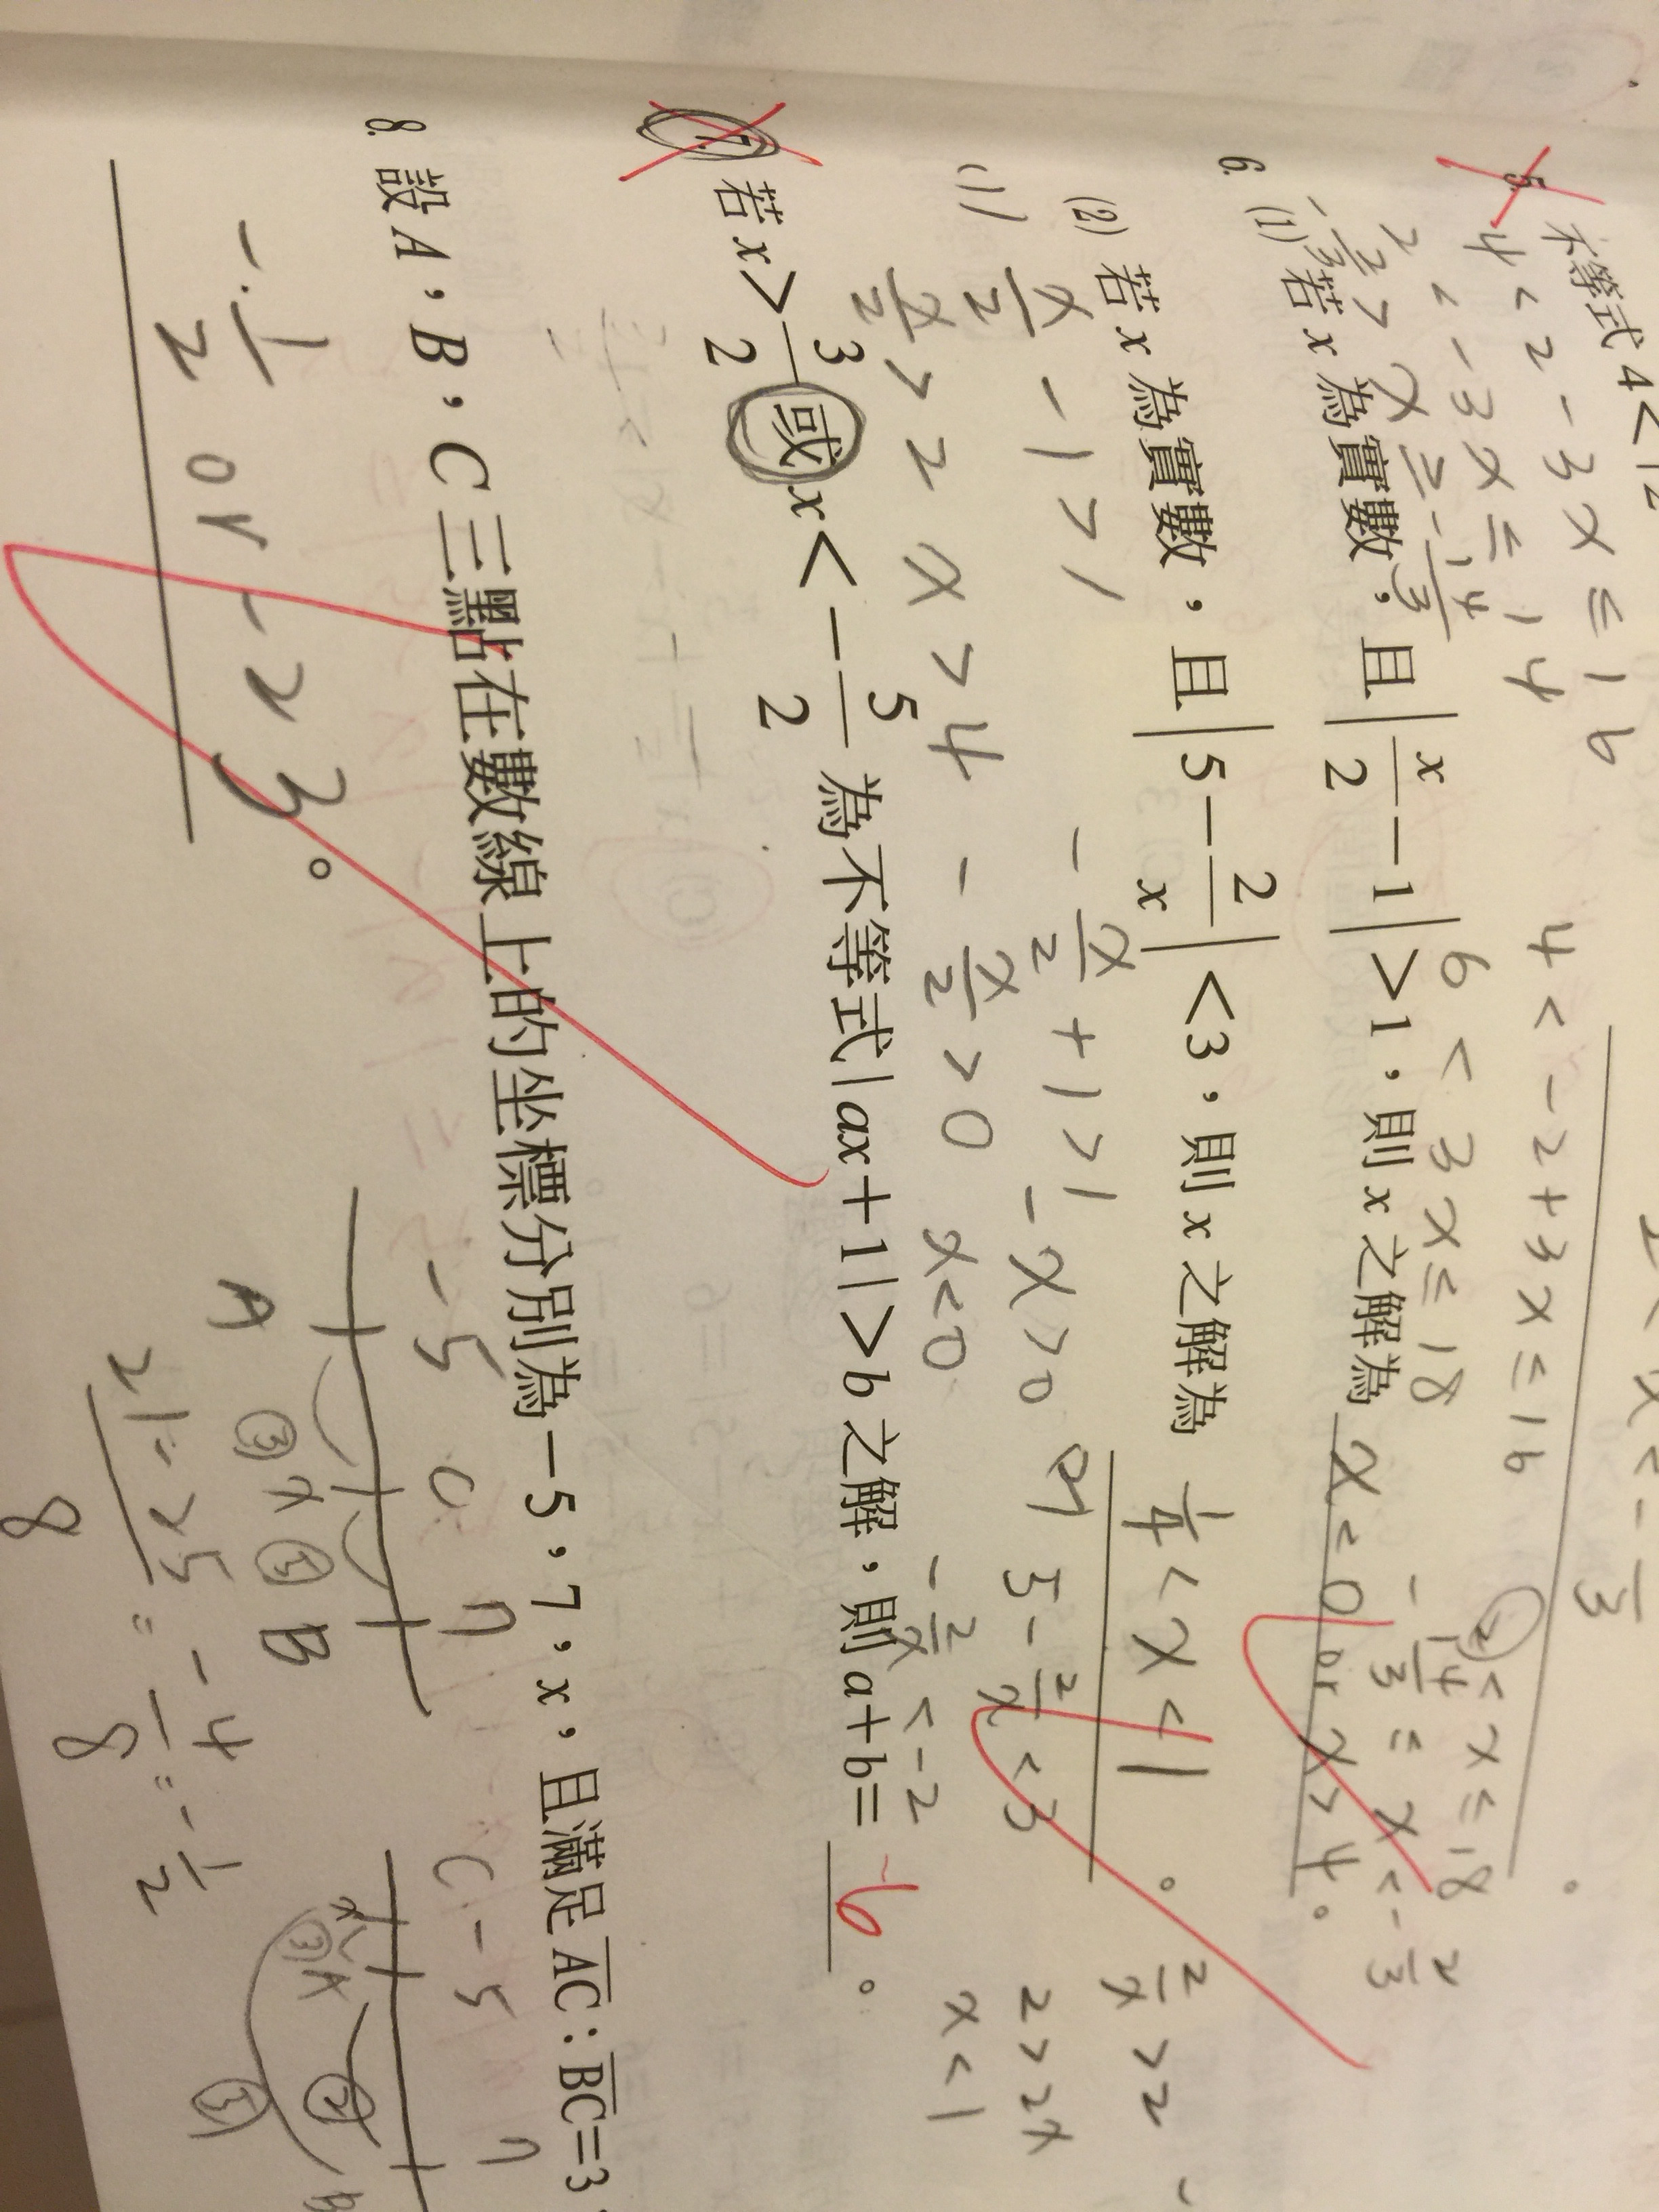 不等式 4<|2
4<2-3x≤16
4<-2+3x≤16
2<-3x≤14
6<3x≤18
2<x≤18
-2/3>x≥-14/3
-14/3≤x<-2/3
6. (1) 若 x 為實數，且|x/2-1|>1，則 x 之解為 x<0 or x>4。
(2) 若 x 為實數，且|5-2/x|<3，則 x 之解為 1/4<x<1。
(1) x/2-1>1
-x/2+1>1
-x>0
or
5-2/x<3
2/x>2
x/2>2
x>4
-x/2>0
x<0
-2/x<-2
2>2x
x<1
7. 若 x>3/2 或 x<-5/2 為不等式|ax+1|>b 之解，則 a+b= 6。
8. 設 A，B，C 三點在數線上的坐標分別為-5，7，x，且滿足 AC:BC=3
-1/2 or -23。
-5 0 7
A ③ x ⑤ B
21-25/8=-4/8=-1/2
C -5 7
③ A ②
⑤